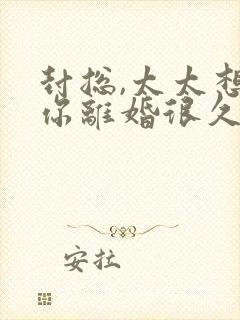 封总,太太想
你離婚很久
安拉